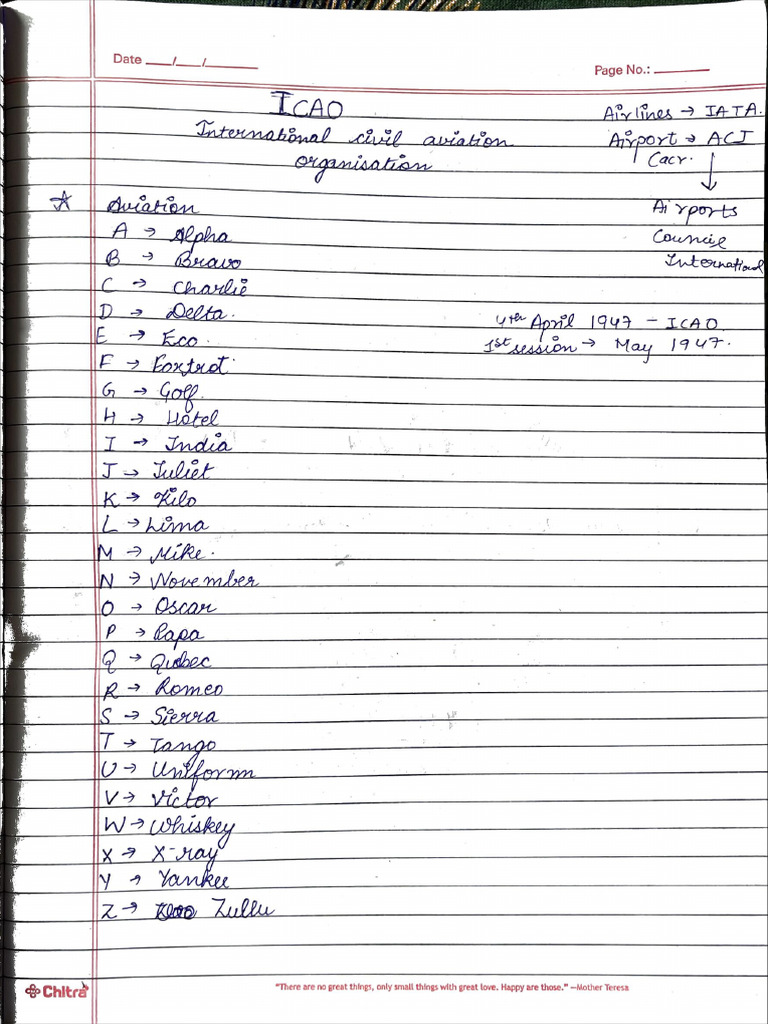 Date ___/___/______
Page No.: ______
ICAO
International civil aviation
organisation
Airlines → IATA.
Airport → ACI
Cacr.
↓
Airports
Council
International
☆ Aviation
A → Alpha
B → Bravo
C → Charlie
D → Delta.
E → Eco.
F → Foxtrot.
G → Golf.
H → Hotel
I → India
J → Juliet
K → Kilo
L → Lima
M → Mike.
N → November
O → Oscar
P → Papa
Q → Qubec
R → Romeo
S → Sierra
T → Tango
U → Uniform
V → Victor
W → Whiskey
X → X-ray
Y → Yankee
Z → Zullu
4th April 1947 - ICAO
1st session → May 1947.
Chitra
"There are no great things, only small things with great love. Happy are those." —Mother Teresa